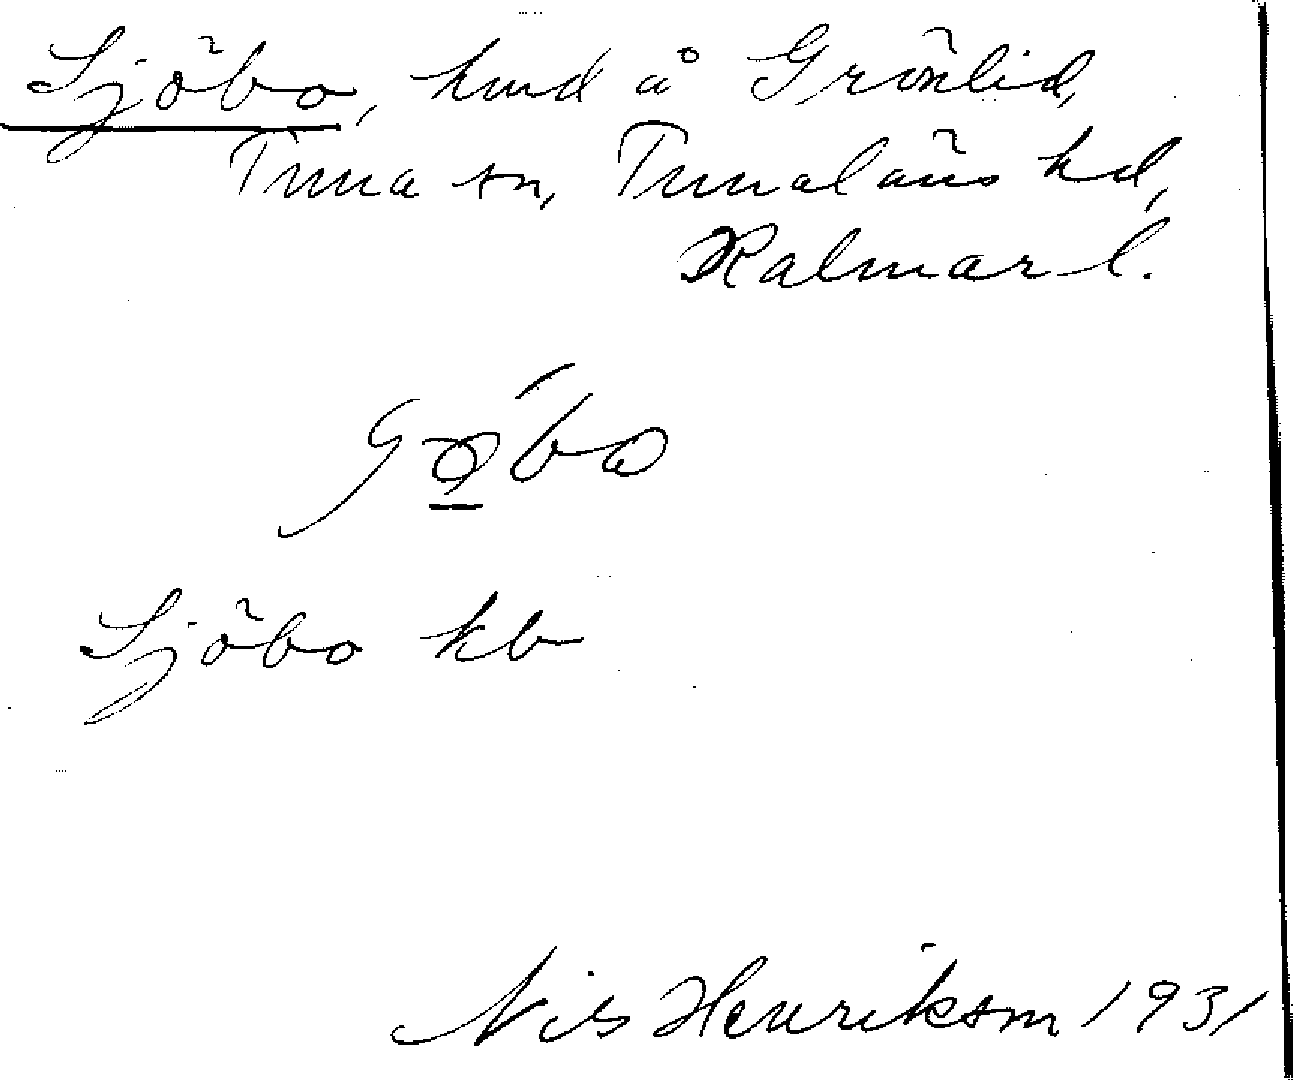 Sjöbo, hmd å Grönlid,
Tuna sn, Tunaläns hd,
Kalmar l.
Sjöbo kb
Nils Henrikson 1931